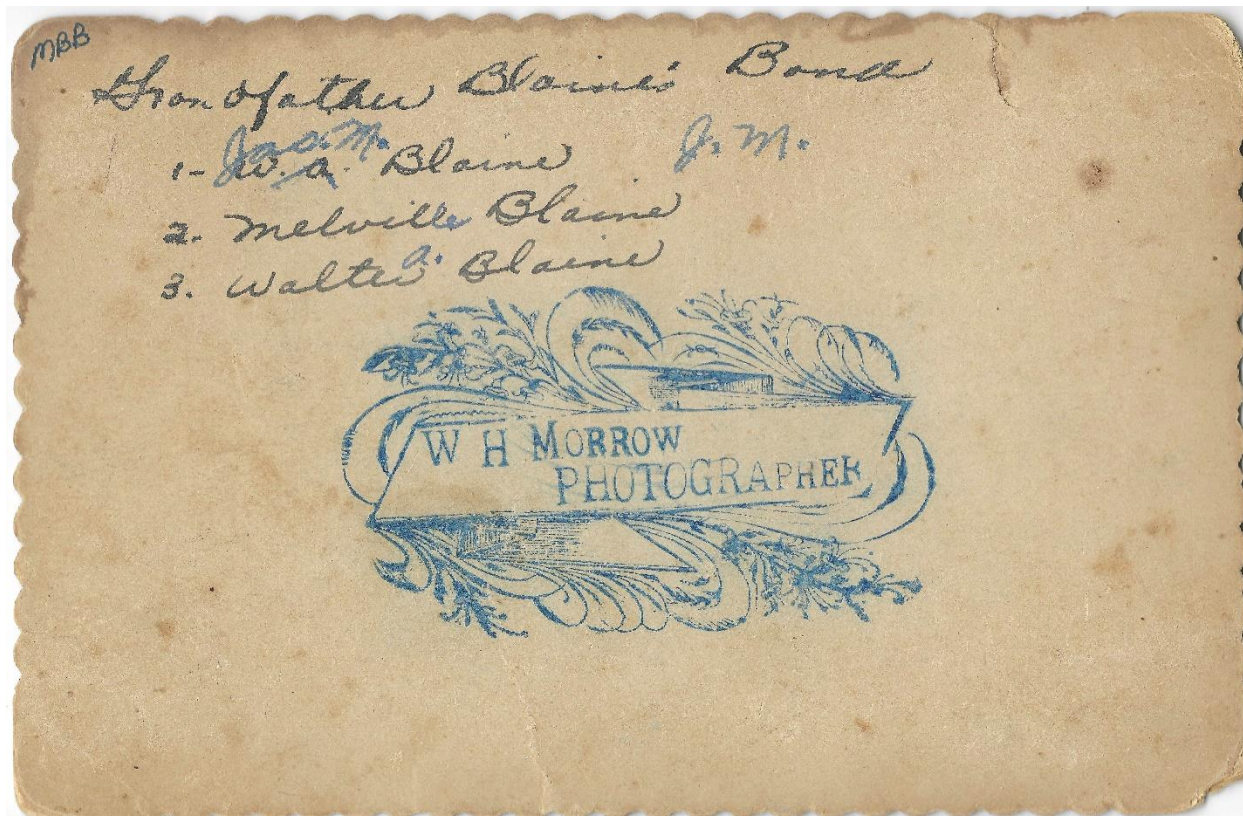 MBB
Grandfather Blaine's Band
Jas. M.
1- W. A. Blaine J. M.
2. Melville Blaine
a.
3. Walter Blaine
W H MORROW
PHOTOGRAPHER